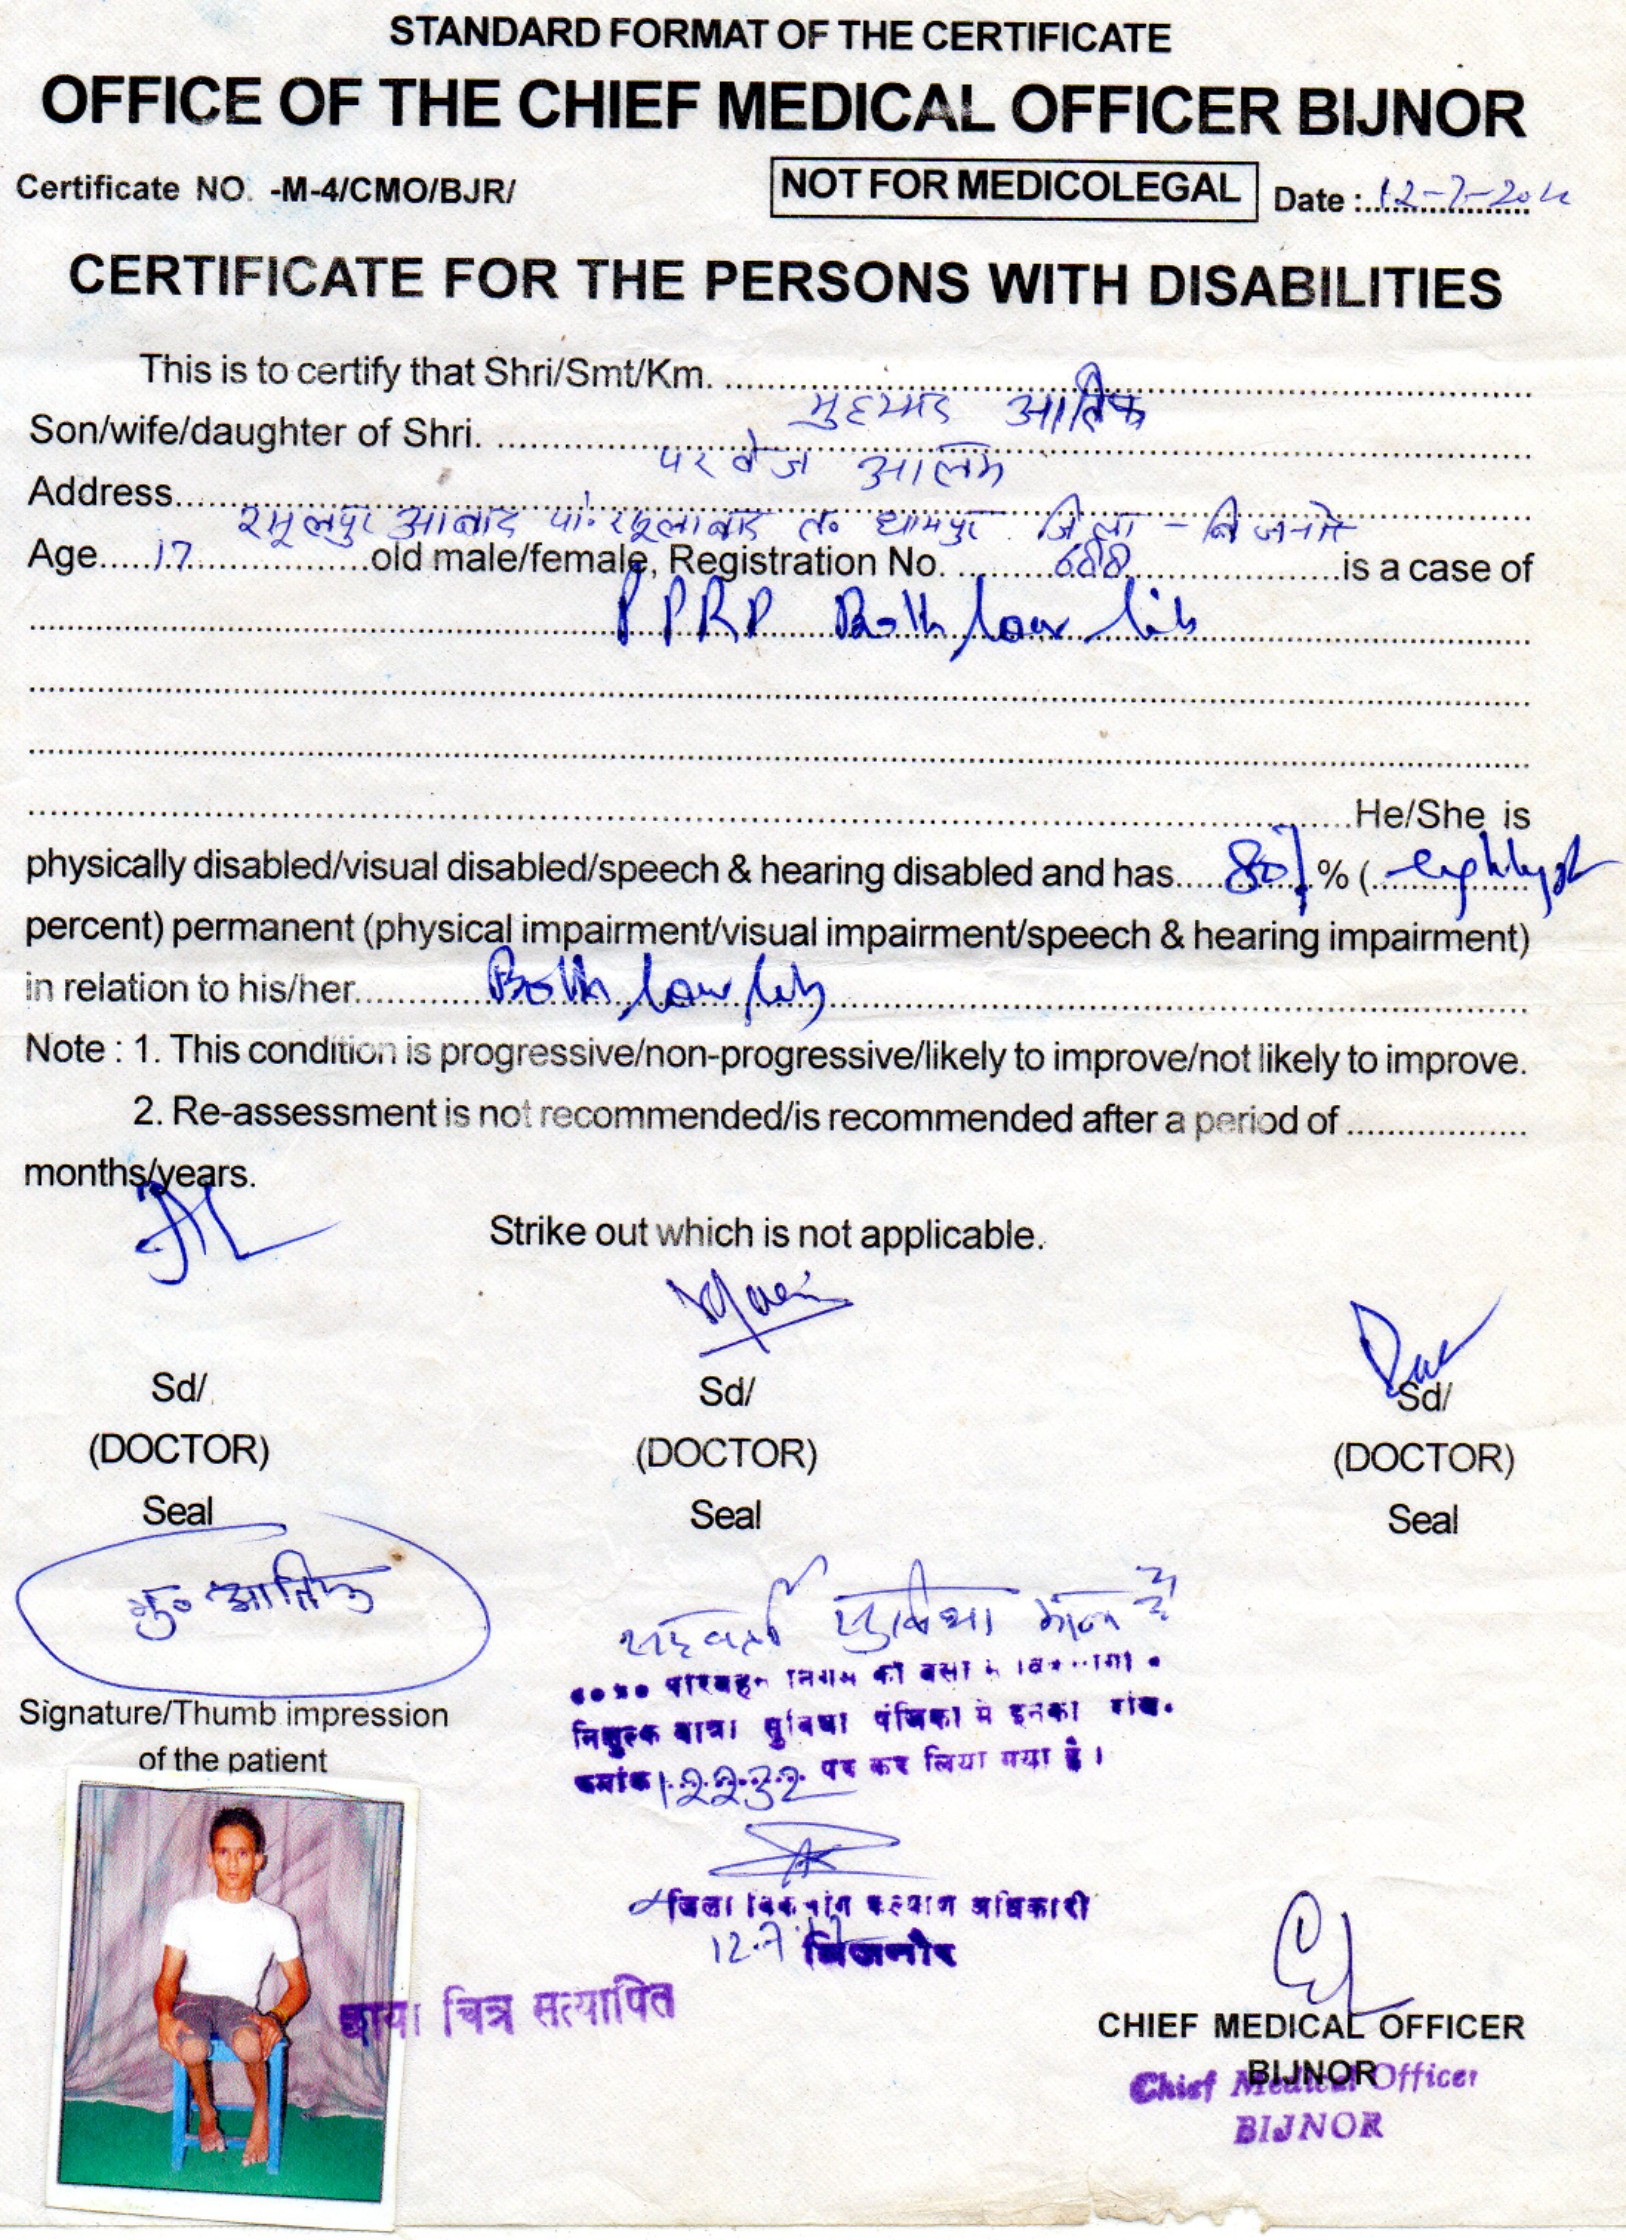 STANDARD FORMAT OF THE CERTIFICATE
OFFICE OF THE CHIEF MEDICAL OFFICER BIJNOR
Certificate NO. -M-4/CMO/BJR/ NOT FOR MEDICOLEGAL Date :
CERTIFICATE FOR THE PERSONS WITH DISABILITIES
This is to certify that Shri/Smt/Km.
मुहम्मद आतिफ
Son/wife/daughter of Shri.
परवेज आलम
Address
रसूलपुर आबाद जिला - बिजनौर
Age.....17.....old male/female, Registration No. is a case of
PPRP Both low
He/She is
physically disabled/visual disabled/speech & hearing disabled and has.....80%.....% (
percent) permanent (physical impairment/visual impairment/speech & hearing impairment)
in relation to his/her.....Both low
Note : 1. This condition is progressive/non-progressive/likely to improve/not likely to improve.
2. Re-assessment is not recommended/is recommended after a period of ...................
months/years.
Strike out which is not applicable.
Sd/ Sd/ Sd/
(DOCTOR) (DOCTOR) (DOCTOR)
Seal Seal Seal
मु० आतिफ
सुविधा
Signature/Thumb impression
of the patient
निशुल्क यात्रा सुविधा पंजिका मे इनका
क्रमांक 12232 पर कर लिया गया है।
जिला विकलांग कल्याण अधिकारी
12.7
बिजनौर
छाया चित्र सत्यापित
CHIEF MEDICAL OFFICER
BIJNOR
Chief Medical Officer
BIJNOR